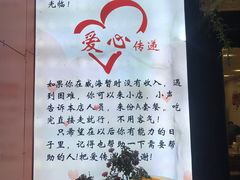 光临！
爱心传递
如果你在威海暂时没有收入，遇
到困难，你可以来小店，小声
告诉本店人员，来份A套餐，吃
完直接走就行，不用客气！
只希望在以后你有能力的日
子里，记得也帮助一下需要帮
助的人！把爱传 谢！